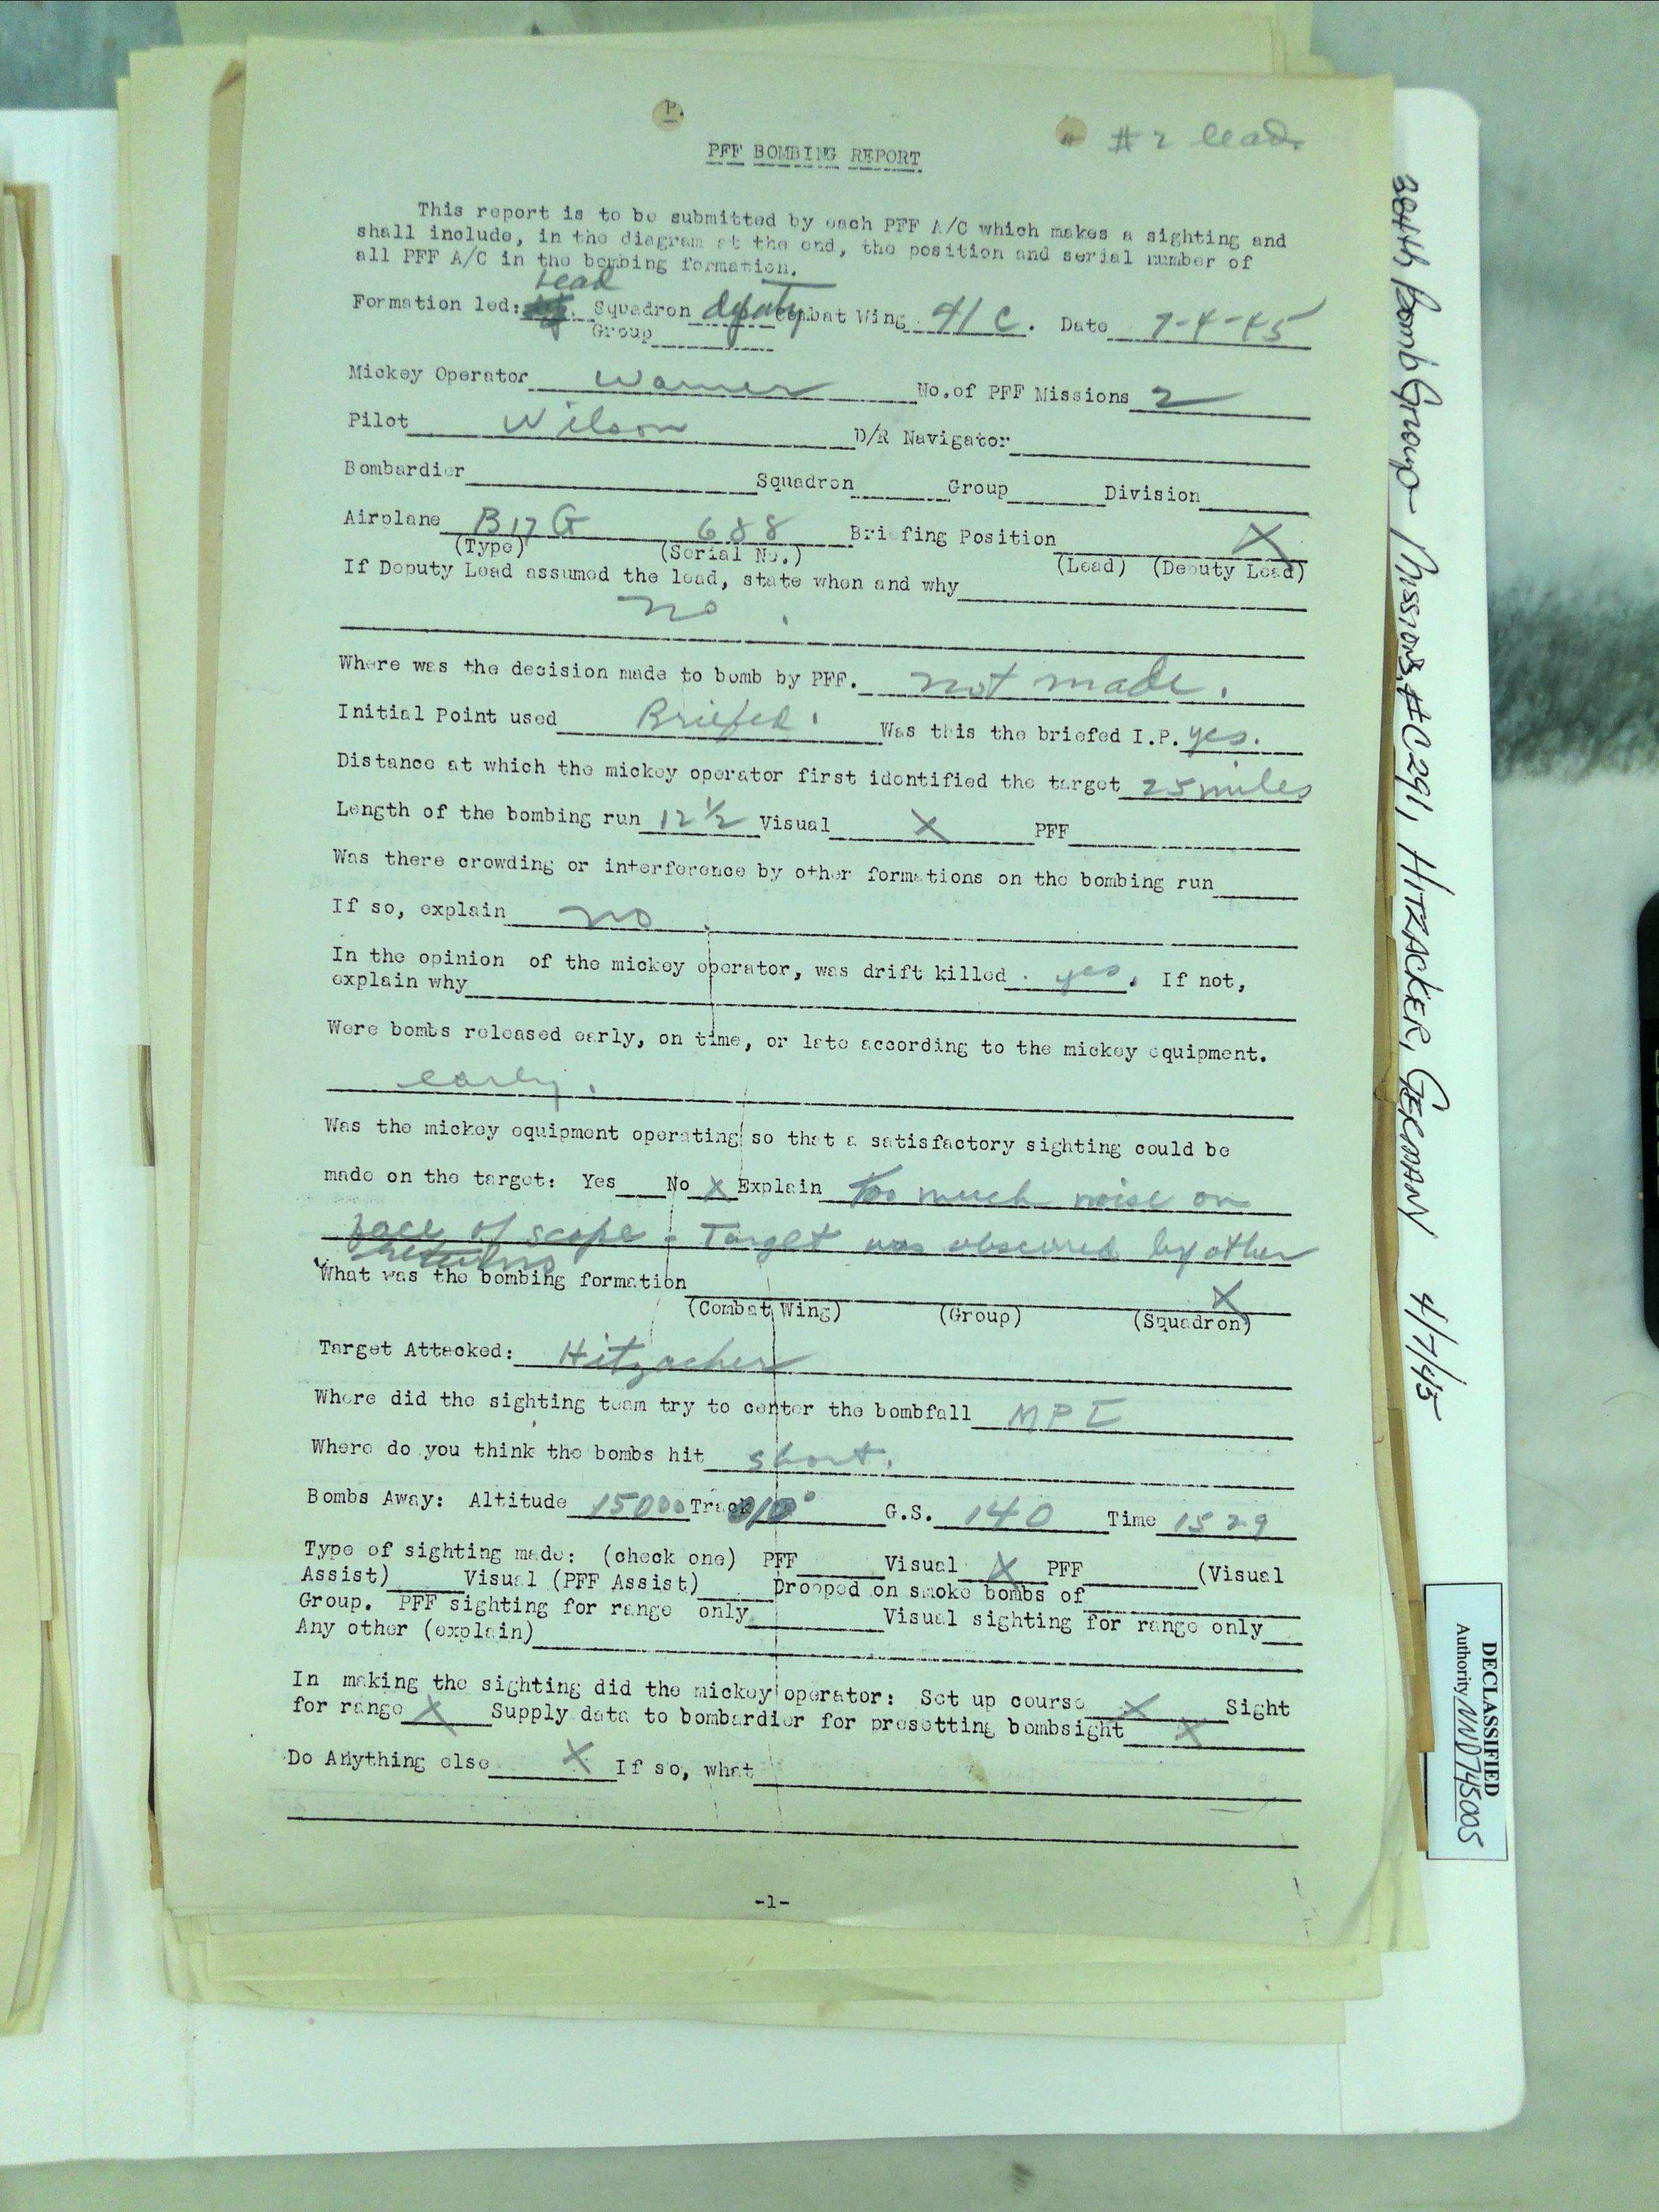 P.
# 2 lead.
PFF BOMBING REPORT
This report is to be submitted by each PFF A/C which makes a sighting and
shall include, in the diagram at the end, the position and serial number of
all PFF A/C in the bombing formation.
Lead
Formation led: Squadron deputy Combat Wing 41 C. Date 7-4-45
Group
Mickey Operator Warner No. of PFF Missions 2
Pilot Wilson D/R Navigator
Bombardier Squadron Group Division
Airplane B17G 688 Briefing Position X
(Type) (Serial No.) (Lead) (Deputy Lead)
If Deputy Lead assumed the lead, state when and why
no.
Where was the decision made to bomb by PFF. not made.
Initial Point used Briefed. Was this the briefed I.P. yes.
Distance at which the mickey operator first identified the target 25 miles
Length of the bombing run 12 1/2 Visual X PFF
Was there crowding or interference by other formations on the bombing run
If so, explain no.
In the opinion of the mickey operator, was drift killed. yes. If not,
explain why
Were bombs released early, on time, or late according to the mickey equipment.
early.
Was the mickey equipment operating so that a satisfactory sighting could be
made on the target: Yes No X Explain Too much noise on
face of scope - Target was obscured by other
returns
What was the bombing formation X
(Combat Wing) (Group) (Squadron)
Target Attacked: Hitzacher
Where did the sighting team try to center the bombfall MPI
Where do you think the bombs hit short.
Bombs Away: Altitude 15000 Track 010° G.S. 140 Time 1529
Type of sighting made: (check one) PFF Visual X PFF (Visual
Assist) Visual (PFF Assist) Dropped on smoke bombs of
Group. PFF sighting for range only Visual sighting for range only
Any other (explain)
In making the sighting did the mickey operator: Set up course X Sight
for range X Supply data to bombardier for presetting bombsight X
Do Anything else X If so, what
-1-
384th Bomb Group Mission #C291, HITZACKER, GERMANY 4/7/45
DECLASSIFIED
Authority NND745005